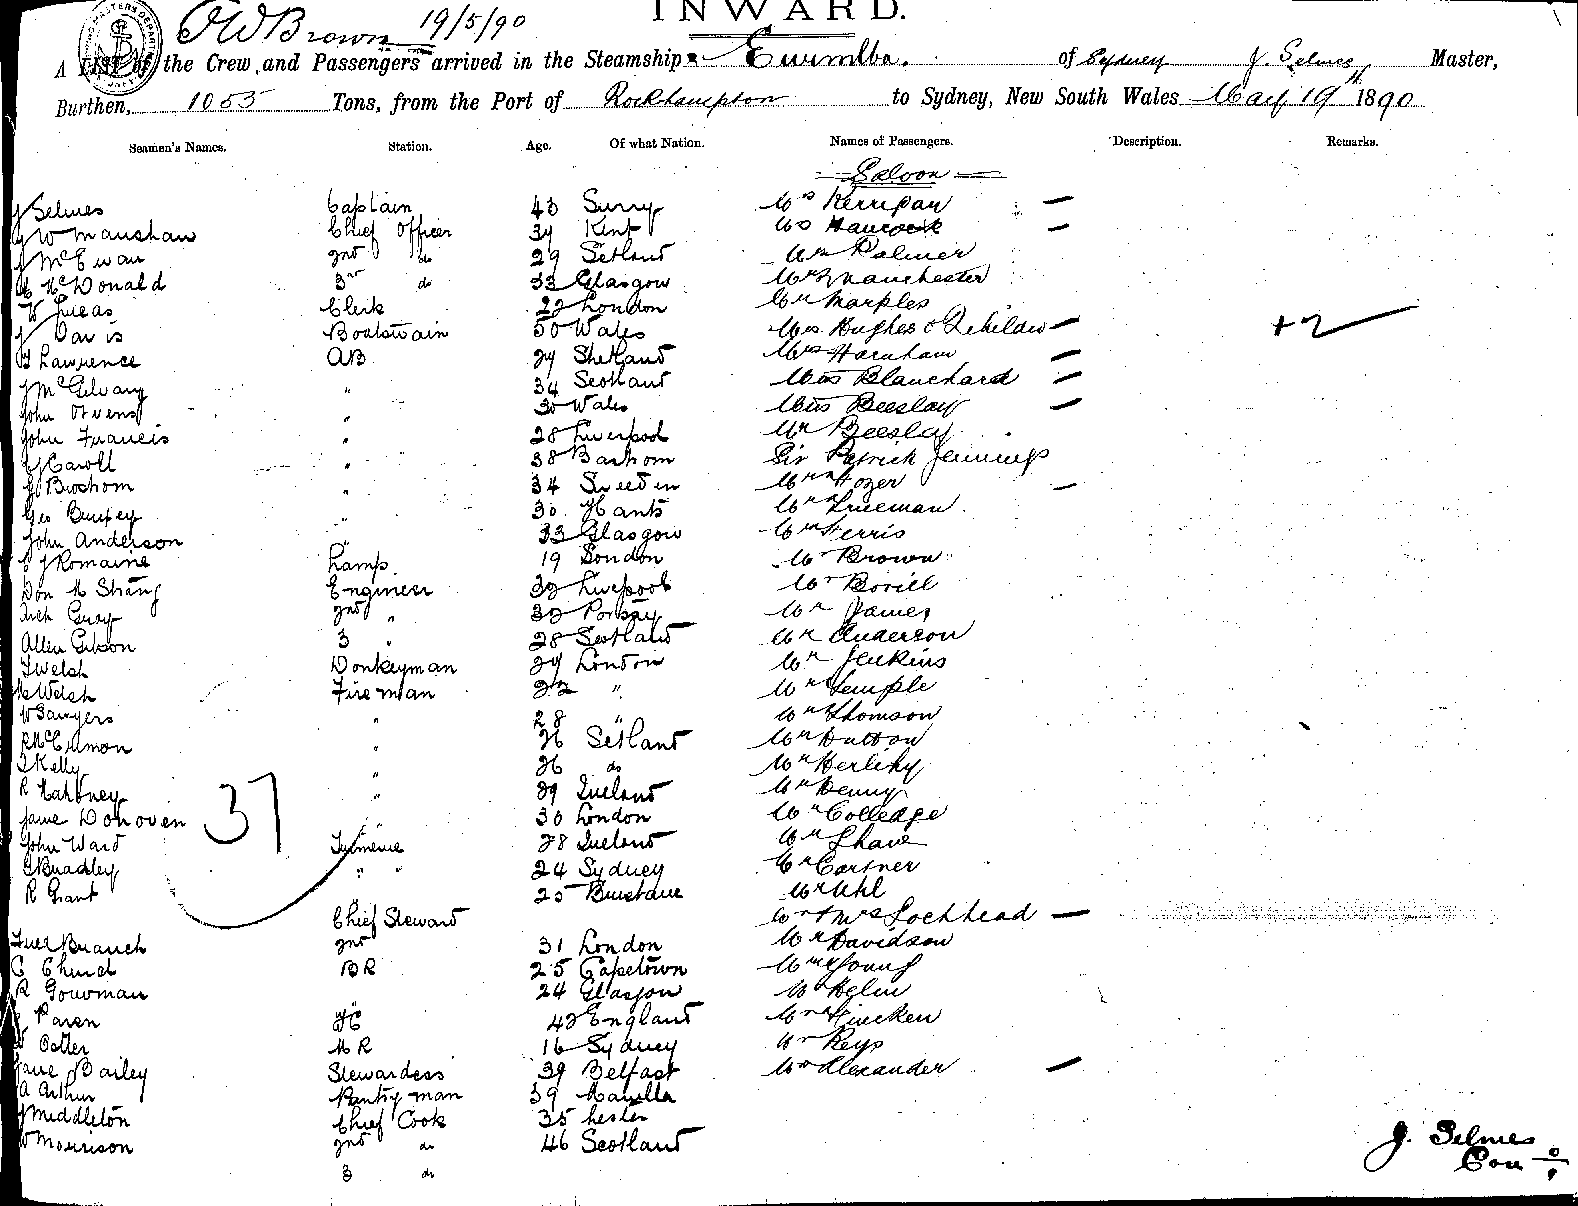 INWARD.
J W Brown 19/5/90
A LIST of the Crew and Passengers arrived in the Steamship of Sydney J. Selmes Master,
Burthen, 1055 Tons, from the Port of Rockhampton to Sydney, New South Wales May 19 1890
Seamen's Names. Station. Age. Of what Nation. Names of Passengers. Description. Remarks.
Saloon
J Selmes Captain 43 Surry Mrs Kerrigan
Chief Officer Kent Mrs Hancock
J McEwan 2nd do 29 Setland Mr Palmer
McDonald 3rd do 33 Glasgow Mr Manchester
W Lucas Clerk 22 London Mr Marples
J Davis Boatswain 50 Wales Mrs Hughes & 2 children +2
Lawrence AB 24 Shetland Mrs Harnham
J McGilvany " 34 Scotland Miss Blanchard
John Owens " 30 Wales Miss Beeslay
John Francis " 28 Liverpool Mr Beeslay
Caroll " 38 Sir Patrick Jennings
" 34 Sweeden
Geo " 30 Hants Mr Trueman
John Anderson " 33 Glasgow Mr Ferris
J Romaine Lamp. 19 London Mr Brown
Don Engineer 32 Liverpool Mr Bovill
Gray 2nd " 32 Mr James
Allen Gibson 3 " 28 Scotland Mr Anderson
Welsh Donkeyman 24 London Mr Jenkins
Welsh Fireman 22 " Mr Temple
W Sawyers " 28 " Mr Thomson
" 26 Setland Mr Hutton
Kelly " 26 do Mr Herlihy
R Mahoney " 29 Ireland Mr Denny
Donoven 37 " 30 London Mr Colledge
John Ward 28 Ireland Mr Shaw
Bradley " " 24 Sydney Mr Cartner
R Grant 25 Brisbane Mr Uhl
Chief Steward Mr & Mrs Lochhead
Branch 2nd 31 London Mr Davidson
C BR 25 Capetown Mr Young
R 24 Glasgow Mr Helin
42 England
MR 16 Sydney Mr Keys
Jane Bailey Stewardess 39 Belfast Mrs Alexander
A Arthur Pantryman 39 Manilla
J Middleton Chief Cook 35
W Morrison 2nd do 46 Scotland
3 do
J. Selmes